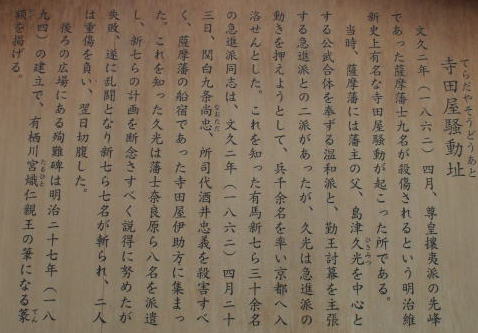 てらだやそうどうあと
寺田屋騒動址
文久二年（一八六二）四月、尊皇攘夷派の先峰
であった薩摩藩士九名が殺傷されるという明治維
新史上有名な寺田屋騒動が起こった所である。
当時、薩摩藩には藩主の父、島津久光を中心と
ひさみつ
する公武合体を奉ずる温和派と、勤王討幕を主張
する急進派との二派があったが、久光は急進派の
動きを押えようとして、兵千余名を率い京都へ入
洛せんとした。これを知った有馬新七ら三十余名
の急進派同志は、文久二年（一八六二）四月二十
三日、関白九条尚忠、所司代酒井忠義を殺害すべ
なおただ
く、薩摩藩の船宿であった寺田屋伊助方に集まっ
た。これを知った久光は藩士奈良原ら八名を派遣
し、新七らの計画を断念さすべく説得に努めたが
失敗、遂に乱闘となり新七ら七名が斬られ、二人
は重傷を負い、翌日切腹した。
後ろの広場にある殉難碑は明治二十七年（一八
九四）の建立で、有栖川宮熾仁親王の筆になる篆
たるひと
てん
額を掲げる。